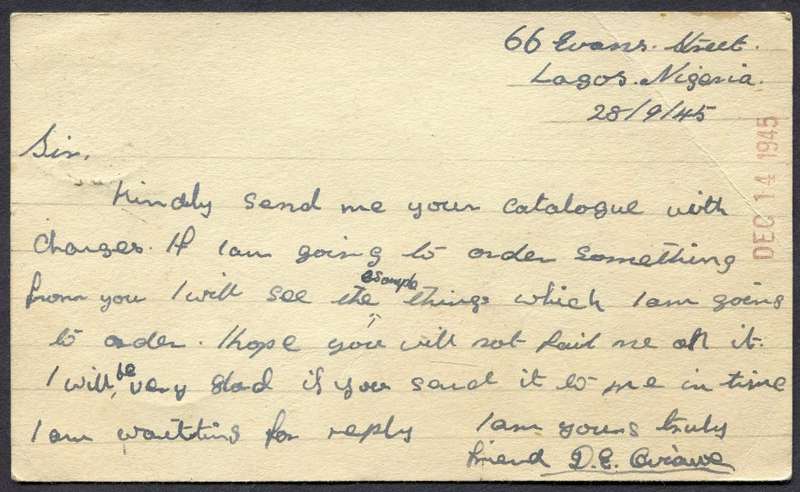 66 Evans. Street.
Lagos. Nigeria.
28/9/45
DEC 14 1945
Sir,
Kindly send me your catalogue with
Charges. If I am going to order something
from you I will see the esample things which I am going
to order. I hope you will not fail me of it.
I will be very glad if you send it to me in time
I am waitting for reply I am yours truly
friend D.E.